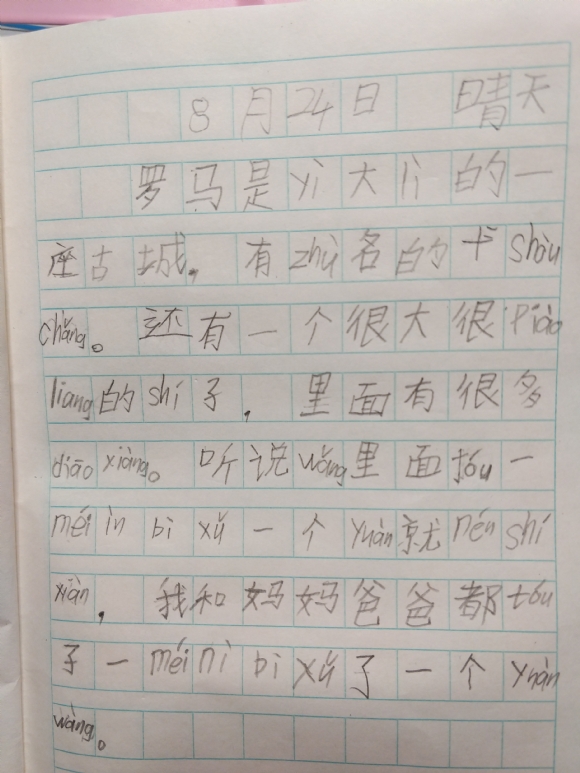 8月24日 晴天
罗马是yì大lì的一
座古城，有zhù名的卡shòu
chǎng。还有一个很大很piào
liang的shí子，里面有很多
diāo xiàng。听说wǎng里面tóu一
méi ìn bì xǔ一个yuàn就nén shí
xiàn，我和妈妈爸爸都tóu
子一méi nì bì xǔ子一个yuàn
wàng。